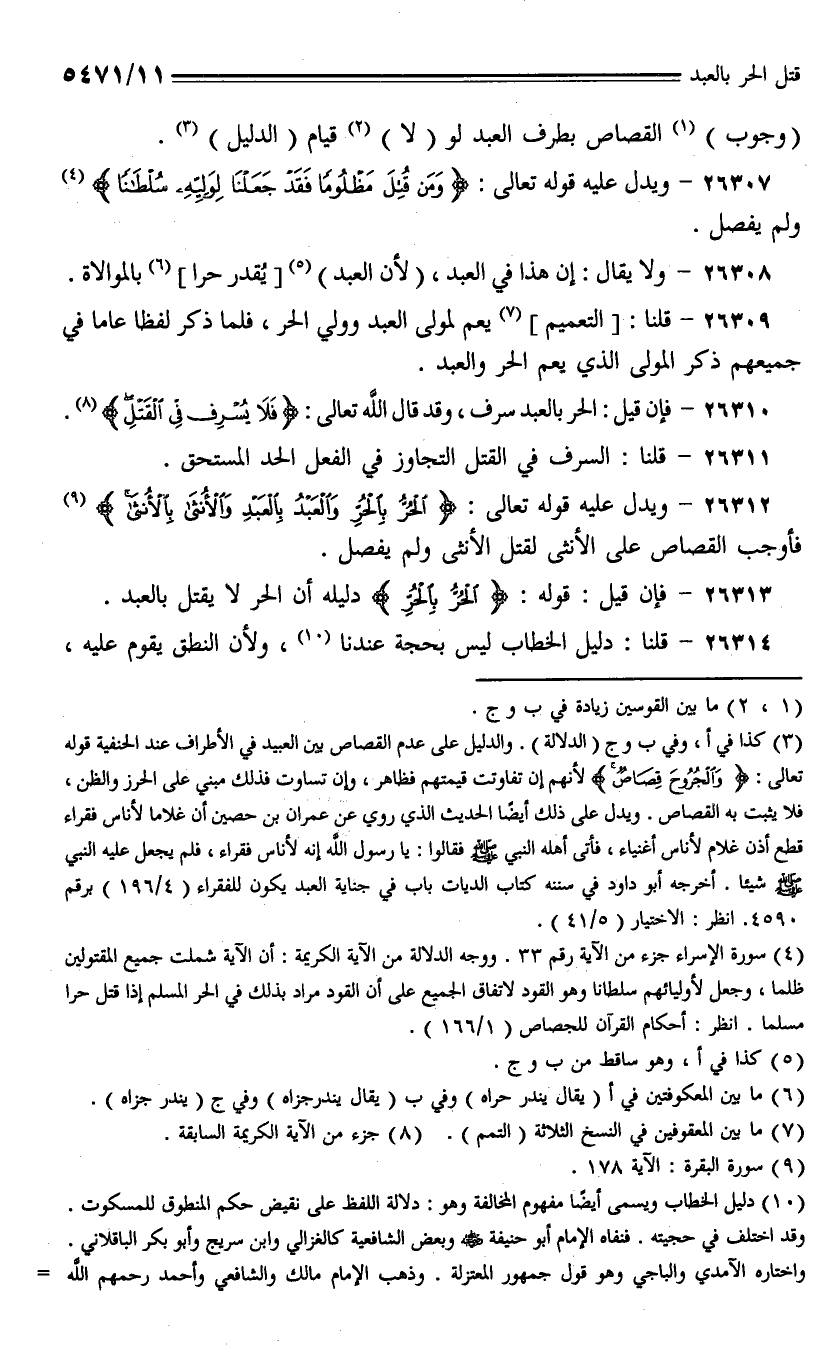 قتل الحر بالعبد ٥٤٧١/١١
( وجوب ) (١) القصاص بطرف العبد لو ( لا ) (٢) قيام ( الدليل ) (٣) .
٢٦٣٠٧ - ويدل عليه قوله تعالى : ﴿ وَمَن قُتِلَ مَظْلُومًا فَقَدْ جَعَلْنَا لِوَلِيِّهِۦ سُلْطَٰنًا ﴾ (٤)
ولم يفصل .
٢٦٣٠٨ - ولا يقال : إن هذا في العبد ، ( لأن العبد ) (٥) [ يُقدر حرا ] (٦) بالموالاة .
٢٦٣٠٩ - قلنا : [ التعميم ] (٧) يعم لمولى العبد وولي الحر ، فلما ذكر لفظا عاما في
جميعهم ذكر المولى الذي يعم الحر والعبد .
٢٦٣١٠ - فإن قيل : الحر بالعبد سرف ، وقد قال اللَّه تعالى : ﴿ فَلَا يُسْرِف فِّي ٱلْقَتْلِۖ ﴾ (٨) .
٢٦٣١١ - قلنا : السرف في القتل التجاوز في الفعل الحد المستحق .
٢٦٣١٢ - ويدل عليه قوله تعالى : ﴿ ٱلْحُرُّ بِٱلْحُرِّ وَٱلْعَبْدُ بِٱلْعَبْدِ وَٱلْأُنثَىٰ بِٱلْأُنثَىٰۚ ﴾ (٩)
فأوجب القصاص على الأنثى لقتل الأنثى ولم يفصل .
٢٦٣١٣ - فإن قيل : قوله : ﴿ ٱلْحُرُّ بِٱلْحُرِّ ﴾ دليله أن الحر لا يقتل بالعبد .
٢٦٣١٤ - قلنا : دليل الخطاب ليس بحجة عندنا (١٠) ، ولأن النطق يقوم عليه ،
(١ ، ٢) ما بين القوسين زيادة في ب و ج .
(٣) كذا في أ ، وفي ب و ج ( الدلالة ) . والدليل على عدم القصاص بين العبيد في الأطراف عند الحنفية قوله
تعالى : ﴿ وَٱلْجُرُوحَ قِصَاصٌۚ ﴾ لأنهم إن تفاوتت قيمتهم فظاهر ، وإن تساوت فذلك مبني على الحرز والظن ،
فلا يثبت به القصاص . ويدل على ذلك أيضًا الحديث الذي روي عن عمران بن حصين أن غلاما لأناس فقراء
قطع أذن غلام لأناس أغنياء ، فأتى أهله النبي ﷺ فقالوا : يا رسول اللَّه إنه لأناس فقراء ، فلم يجعل عليه النبي
ﷺ شيئا . أخرجه أبو داود في سننه كتاب الديات باب في جناية العبد يكون للفقراء ( ١٩٦/٤ ) برقم
٤٥٩٠. انظر : الاختيار ( ٤١/٥ ) .
(٤) سورة الإسراء جزء من الآية رقم ٣٣ . ووجه الدلالة من الآية الكريمة : أن الآية شملت جميع المقتولين
ظلما ، وجعل لأوليائهم سلطانا وهو القود لاتفاق الجميع على أن القود مراد بذلك في الحر المسلم إذا قتل حرا
مسلما . انظر : أحكام القرآن للجصاص ( ١٦٦/١ ) .
(٥) كذا في أ ، وهو ساقط من ب و ج .
(٦) ما بين المعكوفتين في أ ( يقال يندر حراه ) وفي ب ( يقال يندرجزاه ) وفي ج ( يندر جزاه ) .
(٧) ما بين المعقوفين في النسخ الثلاثة ( التمم ) . (٨) جزء من الآية الكريمة السابقة .
(٩) سورة البقرة : الآية ١٧٨ .
(١٠) دليل الخطاب ويسمى أيضًا مفهوم المخالفة وهو : دلالة اللفظ على نقيض حكم المنطوق للمسكوت .
وقد اختلف في حجيته . فنفاه الإمام أبو حنيفة ﷺ وبعض الشافعية كالغزالي وابن سريج وأبو بكر الباقلاني .
واختاره الآمدي والباجي وهو قول جمهور المعتزلة . وذهب الإمام مالك والشافعي وأحمد رحمهم اللَّه =